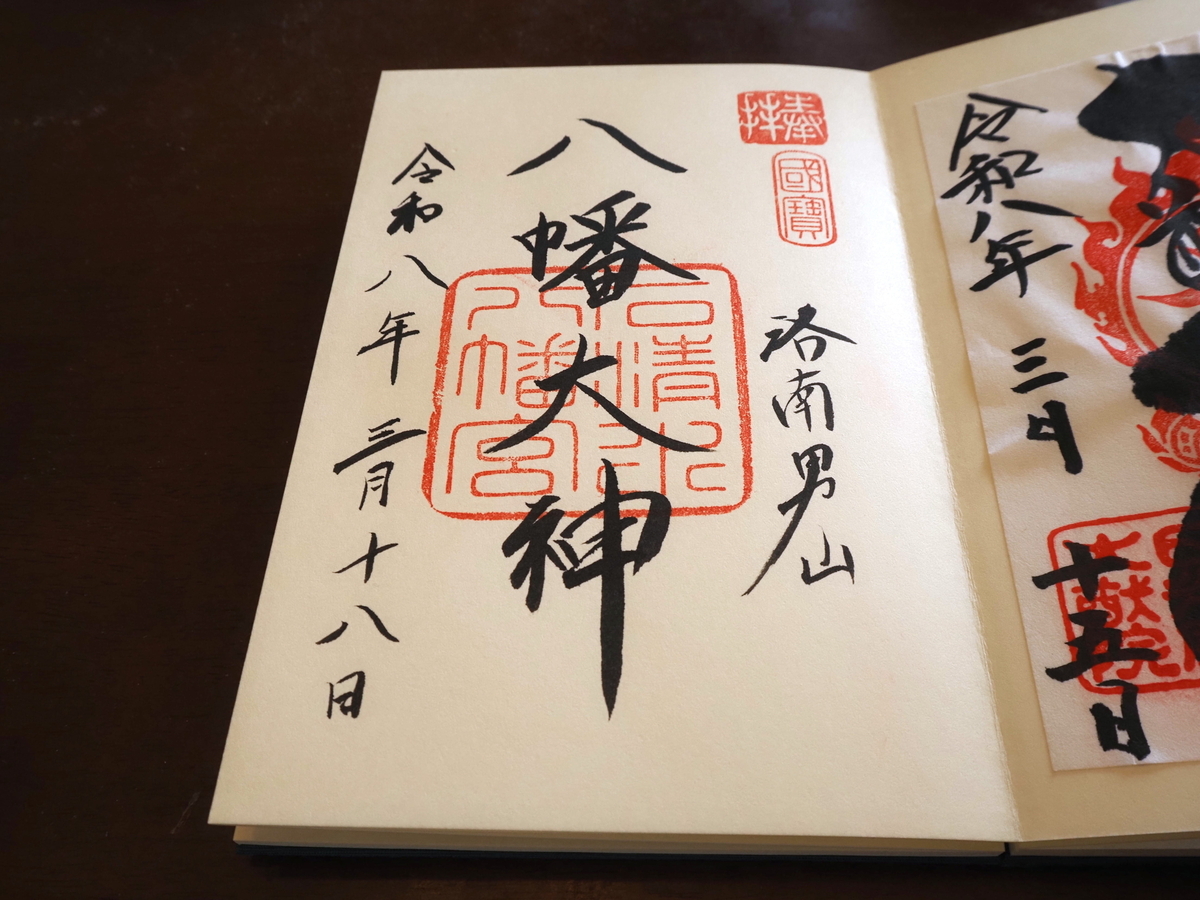 令和八年 三月
十五日
奉拝
國寶
洛南男山
八幡大神
石清水
八幡宮
令和八年 三月十八日